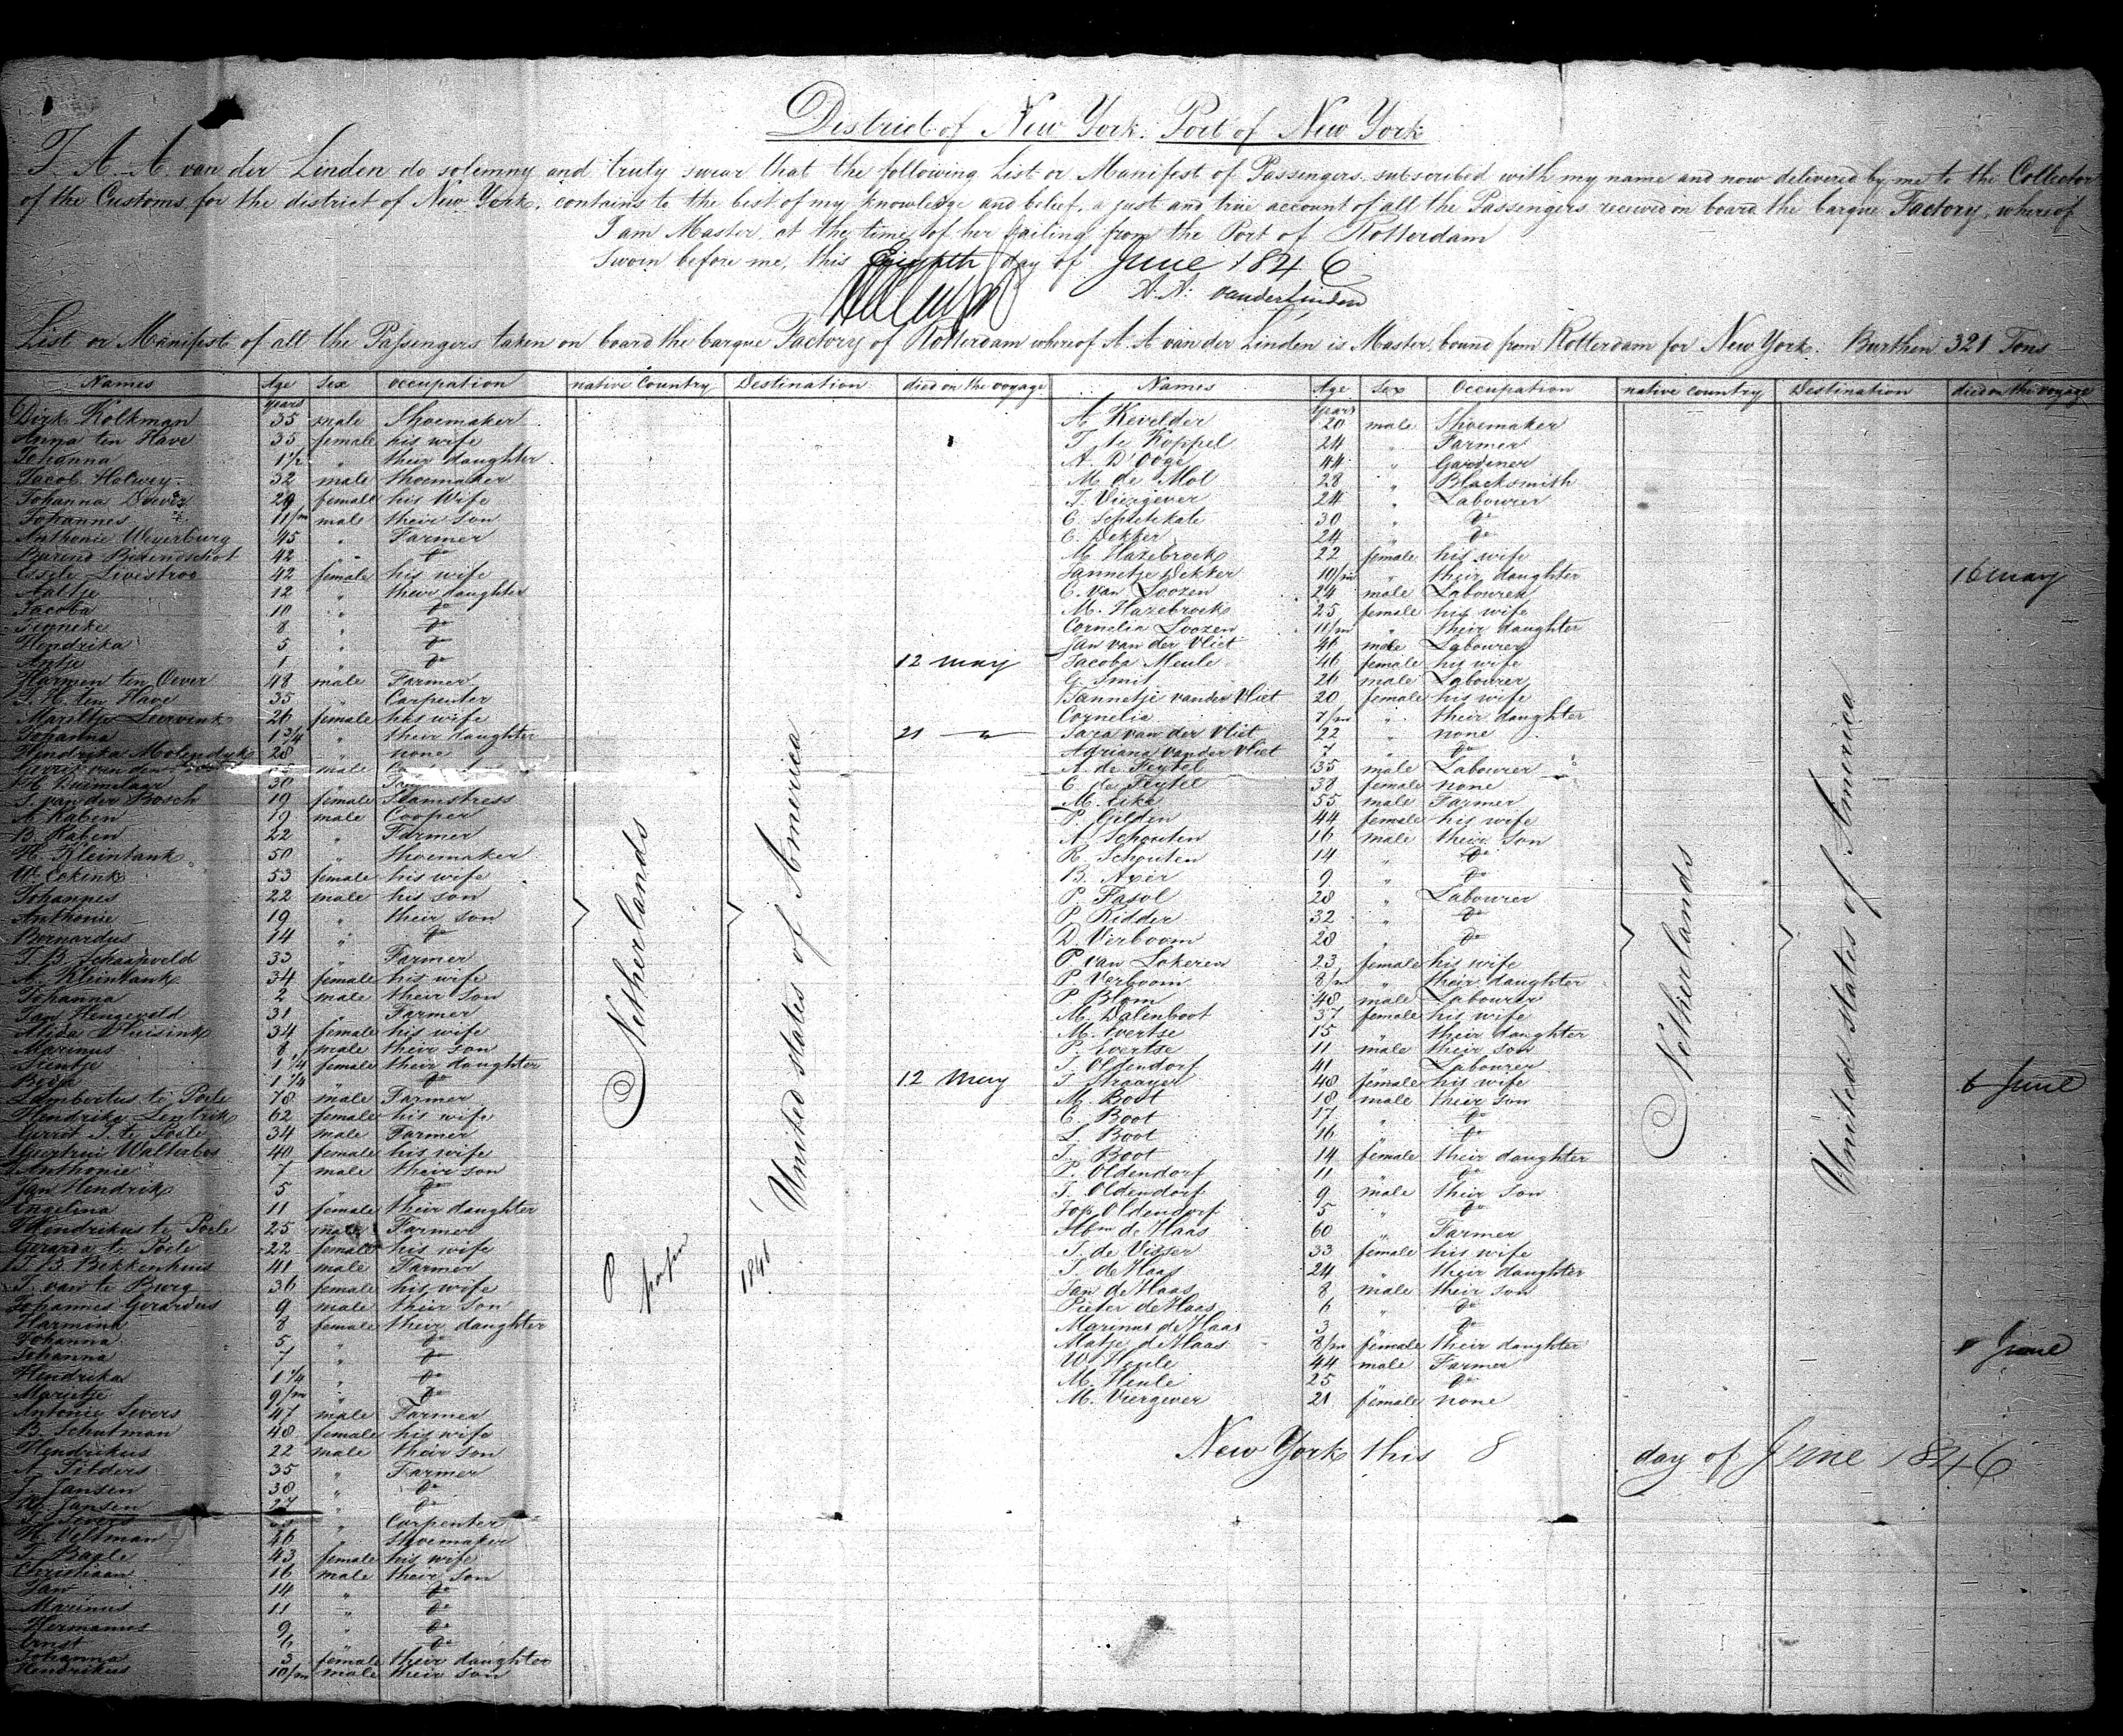 District of New York. Port of New York
I A. A. van der Linden do solemny and truly swear that the following List or Manifest of Passengers, subscribed with my name and now delivered by me to the Collector
of the Customs, for the district of New York, contains to the best of my knowledge and belief, a just and true account of all the Passengers received on board the barque Factory, whereof
I am Master, at the time of her sailing from the Port of Rotterdam
Sworn before me, this Eighth day of June 1846
A. A. vanderLinden
List or Manifest of all the Passengers taken on board the barque Factory of Rotterdam whereof A. A van der Linden is Master, bound from Rotterdam for New York. Burthen 321 Tons
Names Age Sex occupation native Country Destination died on the voyage
years
Dirk Kolkman 35 male Shoemaker
Anna ten Have 35 female his wife
Johanna 1 1/2 " their daughter
Jacob Holwey 32 male shoemaker
Johanna 29 female his Wife
Johannes 11/m male their son
Anthonie Weyerburg 45 " Farmer
Barend 42 " do
42 female his wife
Aaltje 12 " their daughter
Jacoba 10 " do
Janneke 8 " do
Hendrika 5 " do
Antje 1 " do 12 may
Harmen ten Oever 48 male Farmer
J. H. ten Have 35 " Carpenter
26 female his wife
Johanna 1 3/4 " their daughter 21 "
Hendrika Molendyk 28 " none
male
30
J. van der Bosch 19 female Seamstress
A Raben 19 male Cooper
B. Raben 22 " Farmer
H. Kleintank 50 " Shoemaker
W. Eekink 53 female his wife
Johannes 22 male his son
Anthonie 19 " their son
Bernardus 14 " do
J. B. Schaapveld 33 " Farmer
A. Kleintank 34 female his wife
Johanna 2 male their son
Jan Hengeveld 31 " Farmer
34 female his wife
Marinus 8 male their son
1 1/4 female their daughter
1 1/4 " do 12 May
Lambertus te Poele 78 male Farmer
Hendrika Lentrik 62 female his wife
Gerrit J. te Poele 34 male Farmer
Geertrui Walterbos 40 female his wife
Anthonie 7 male their son
Jan Hendrik 5 " do
Engelina 11 female their daughter
Hendrikus te Poele 25 male Farmer
Gerarda te Poele 22 female his wife
J. B. Bekkenhuis 41 male Farmer
J. van te Burg 36 female his wife
Johannes Gerardus 9 male their son
Harmina 8 female their daughter
Johanna 5 " do
Johanna 7 " do
Hendrika 1 1/4 " do
Marietje 9/m " do
Antonie Severs 47 male Farmer
B. Schutman 48 female his wife
Hendrikus 22 male their son
A. Tibders 35 " Farmer
J. Jansen 38 " do
Jansen 27 " do
" Carpenter
H. Veltman 46 " Shoemaker
J. Bagle 43 female his wife
Christiaan 16 male their son
Jan 14 " do
Marinus 11 " do
Hermanus 9 " do
Ernst 6 " do
Johanna 3 female their daughter
Hendrikus 10/m male their son
Netherlands
United States of America
1846
Names Age Sex Occupation native country Destination died on the voyage
years
A Kevelder 20 male Shoemaker
T. te Koppel 24 " Farmer
A. D'Ooge 44 " Gardener
M. de Mol 28 " Blacksmith
J. Viergever 24 " Labourer
C. Schietekate 30 " do
C. Dekker 24 " do
M. Hazebroek 22 female his wife
Jannetje Dekker 10/m " their daughter 16 may
C. van Loozen 24 male Labourer
M. Hazebroek 25 female his wife
Cornelia Loozen 11/m " their daughter
Jan van der Vliet 46 male Labourer
Jacoba Meule 46 female his wife
G. Smit 26 male Labourer
Jannetje vander Vliet 20 female his wife
Cornelia 7/m " their daughter
Sara van der Vliet 22 " none
Adriana vander Vliet 7 " do
A. de Feytel 35 male Labourer
C. de Feytel 38 female none
M. Eike 55 male Farmer
P. Gilden 44 female his wife
A Schouten 16 male their son
R. Schouten 14 " do
B. Axer 9 " do
P. Fasol 28 " Labourer
P. Ridder 32 " do
D. Verboom 28 " do
P van Lokeren 23 female his wife
P Verboom 8/m " their daughter
P Blom 48 male Labourer
M. Dalenboot 37 female his wife
M. Evertse 15 " their daughter
P. Evertse 11 male their son
J Oldendorf 41 " Labourer
J. Straayer 48 female his wife 6 June
M. Boot 18 male their son
C. Boot 17 " do
L. Boot 16 " do
J. Boot 14 female their daughter
P. Oldendorf 11 " do
J. Oldendorf 9 male their son
Jop Oldendorf 5 " do
Abm de Haas 60 " Farmer
J. de Visser 33 female his wife
J. de Haas 24 " their daughter
Jan de Haas 8 male their son
Pieter de Haas 6 " do
Marinus de Haas 3 " do
Matje de Haas 8/m female their daughter June
W. Heule 44 male Farmer
M. Heule 25 " do
M. Viergever 21 female none
Netherlands
United States of America
New York this 8 day of June 1846